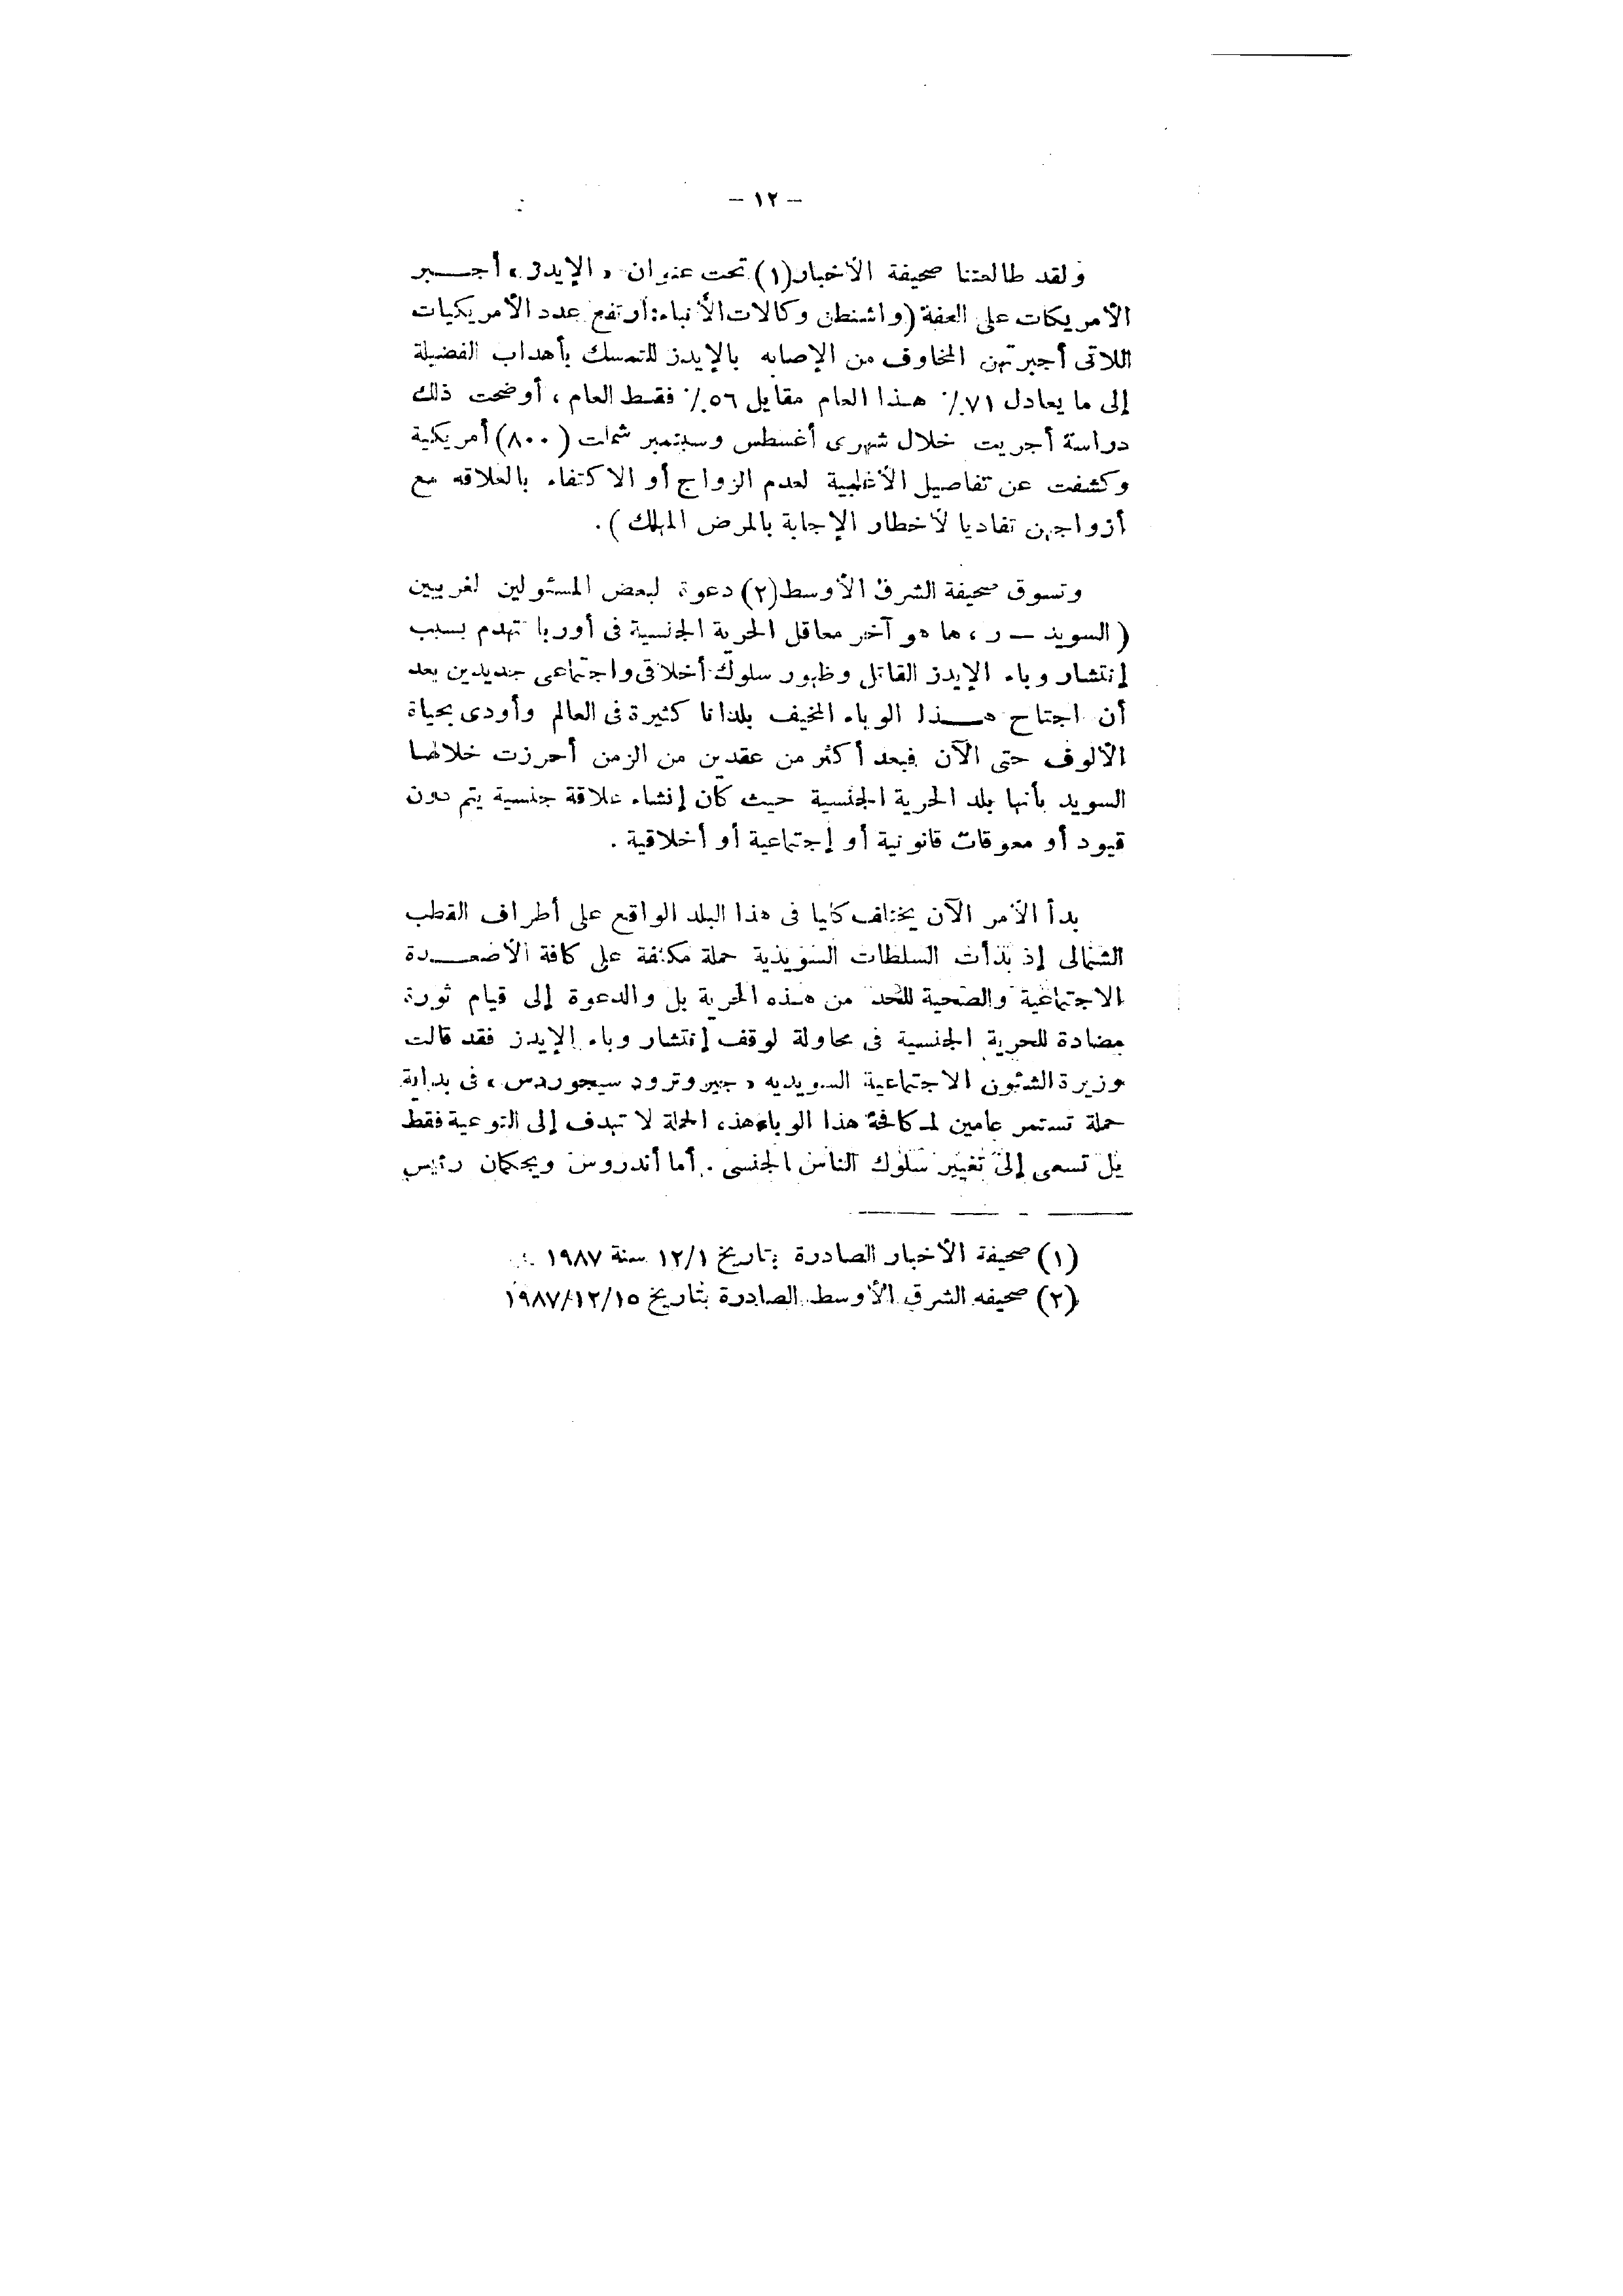 – ١٢ –
ولقد طالعتنا صحيفة الأخبار(١) تحت عنوان « الإيدز » أجـــبر
الأمريكات على العفة (واشنطن وكالات الأنباء: أرتفع عدد الأمريكيات
اللاتى أجبرتهن المخاوف من الإصابه بالإيدز للتمسك بأهداب الفضيلة
إلى ما يعادل ٧١٪ هـذا العام مقابل ٥٦٪ فقـط العام ، أوضحت ذلك
دراسة أجريت خلال شهرى أغسطس وسبتمبر شملت (٨٠٠) أمريكية
وكشفت عن تفاصيل الأغلبية لعدم الزواج أو الاكتفاء بالعلاقه مع
أزواجهن تفاديا لأخطار الإجابة بالمرض المهلك ) .
وتسوق صحيفة الشرق الأوسط(٢) دعوة لبعض المسئولين لغربيين
( السويد – ر ، ها هو آخر معاقل الحرية الجنسية فى أوربا تهدم بسبب
إنتشار وباء الإيدز القاتل وظهور سلوك أخلاقى واجتماعى جديدين بعد
أن اجتاح هـــذا الوباء المخيف بلدانا كثيرة فى العالم وأودى بحياة
الألوف حتى الآن فبعد أكثر من عقدين من الزمن أحرزت خلالهـا
السويد بأنها بلد الحرية الجنسية حيث كان إنشاء علاقة جنسية يتم دون
قيود أو معوقات قانونية أو إجتماعية أو أخلاقية .
بدأ الأمر الآن يختلف كليا فى هذا البلد الواقع على أطراف القطب
الشمالى إذ بدأت السلطات السويدية حملة مكثفة على كافة الأصعـــدة
الاجتماعية والصحية للحد من هـذه الحرية بل والدعوة إلى قيام ثورة
مضادة للحرية الجنسية فى محاولة لوقف إنتشار وباء الإيدز فقد قالت
وزيرة الشئون الاجتماعية السويديه « جيروترود سيجوردس » فى بداية
حملة تستمر عامين لمـكافحة هذا الوباء هذه الحملة لا تهدف إلى التوعية فقط
بل تسعى إلى تغيير سلوك الناس الجنسى . أما أندروس ويجكمان رئيس
(١) صحيفة الأخبار الصادرة بتاريخ ١٢/١ سنة ١٩٨٧ .
(٢) صحيفه الشرق الأوسط الصادرة بتاريخ ١٩٨٧/١٢/١٥